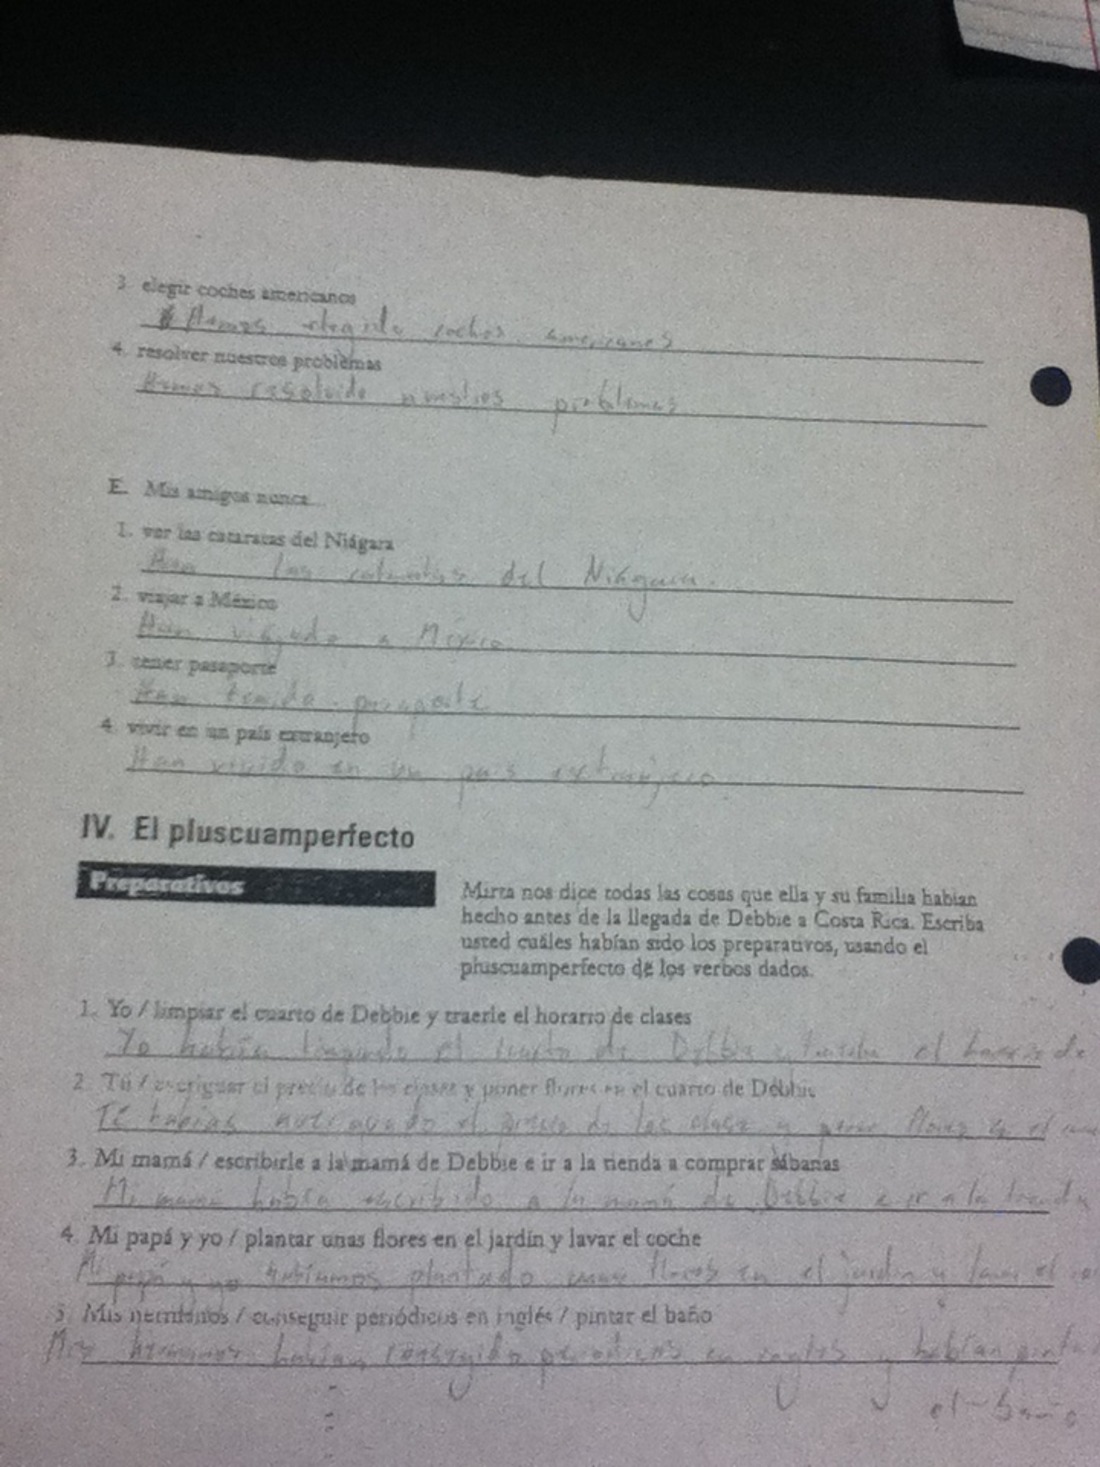 3. elegir coches americanos
Hemos elegido coches americanos
4. resolver nuestros problemas
Hemos resolvido nuestros problemas
E. Mis amigos nunca...
1. ver las cataratas del Niágara
Han las cataratas del Niágara.
2. viajar a México
Han viajado a México.
3. tener pasaporte
Han tenido pasaporte
4. vivir en un país extranjero
Han vivido en un país extranjero.
IV. El pluscuamperfecto
Preparativos
Mirta nos dice todas las cosas que ella y su familia habían
hecho antes de la llegada de Debbie a Costa Rica. Escriba
usted cuáles habían sido los preparativos, usando el
pluscuamperfecto de los verbos dados.
1. Yo / limpiar el cuarto de Debbie y traerle el horario de clases
Yo había el cuarto de Debbie y el horario de
2. Tú / averiguar el precio de las clases y poner flores en el cuarto de Debbie
Tú habías averiguado el precio de las clase y poner flores en el
3. Mi mamá / escribirle a la mamá de Debbie e ir a la tienda a comprar sábanas
Mi mamá había escribido a la mamá de Debbie e ir a la tienda
4. Mi papá y yo / plantar unas flores en el jardín y lavar el coche
Mi papá y yo habíamos plantado unas flores en el jardín y lavar el
5. Mis hermanos / conseguir periódicos en inglés / pintar el baño
Mis hermanos habían conseguido periódicos en inglés y habían
el baño